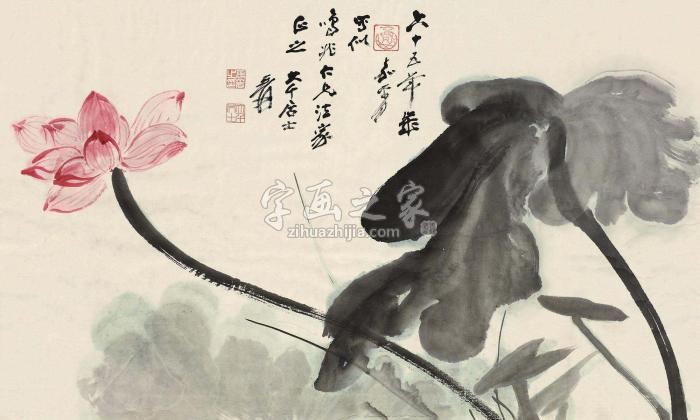 六十五年
嘉平月
似
仁兄法家
正之 大千居士
爰
字画之家
zihuazhijia.com